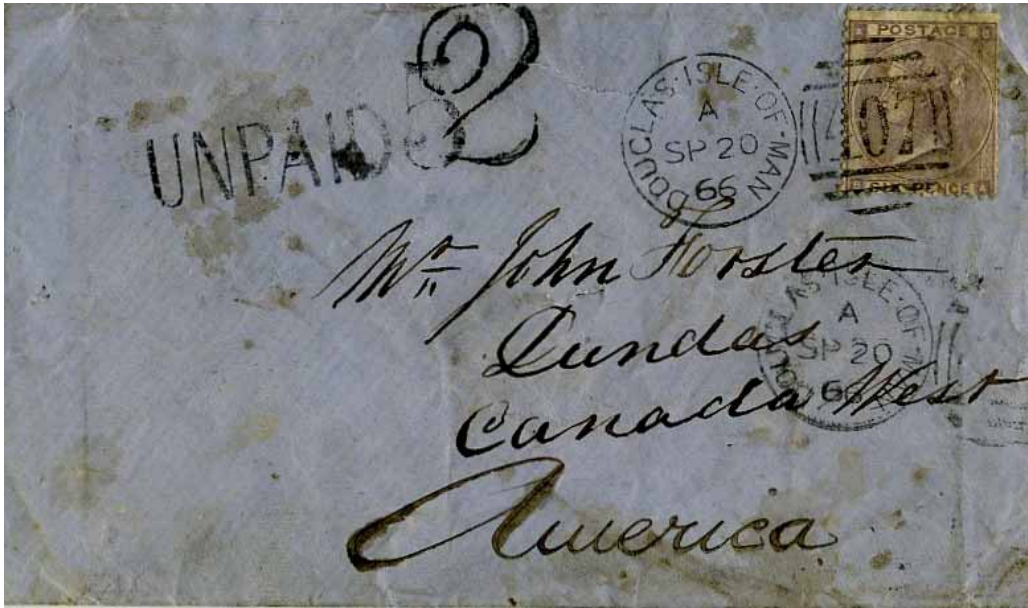 2
UNPAID 5
DOUGLAS·ISLE·OF·MAN
A
SP 20
66
POSTAGE
407
SIX PENCE
Mr. John Forster
Dundas
Canada West
America
DOUGLAS·ISLE·OF·MAN
A
SP 20
66